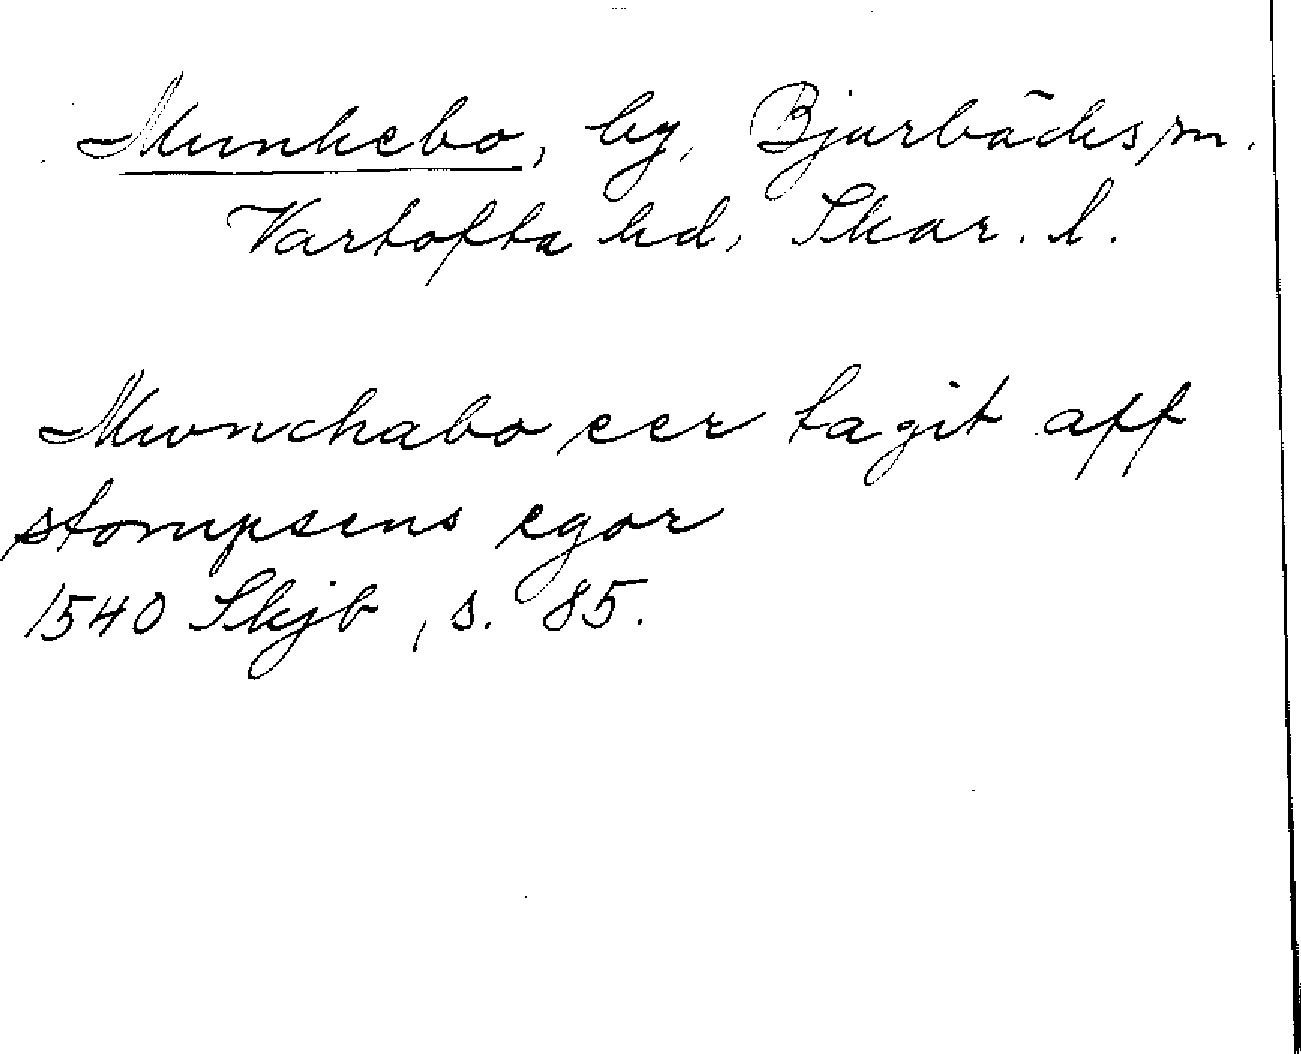 Munkebo, by, Bjurbäcks sn.
Vartofta hd, Skar. l.
Mwnchabo eer tagit aff
stompsens egor
1540 Skjb, s. 85.